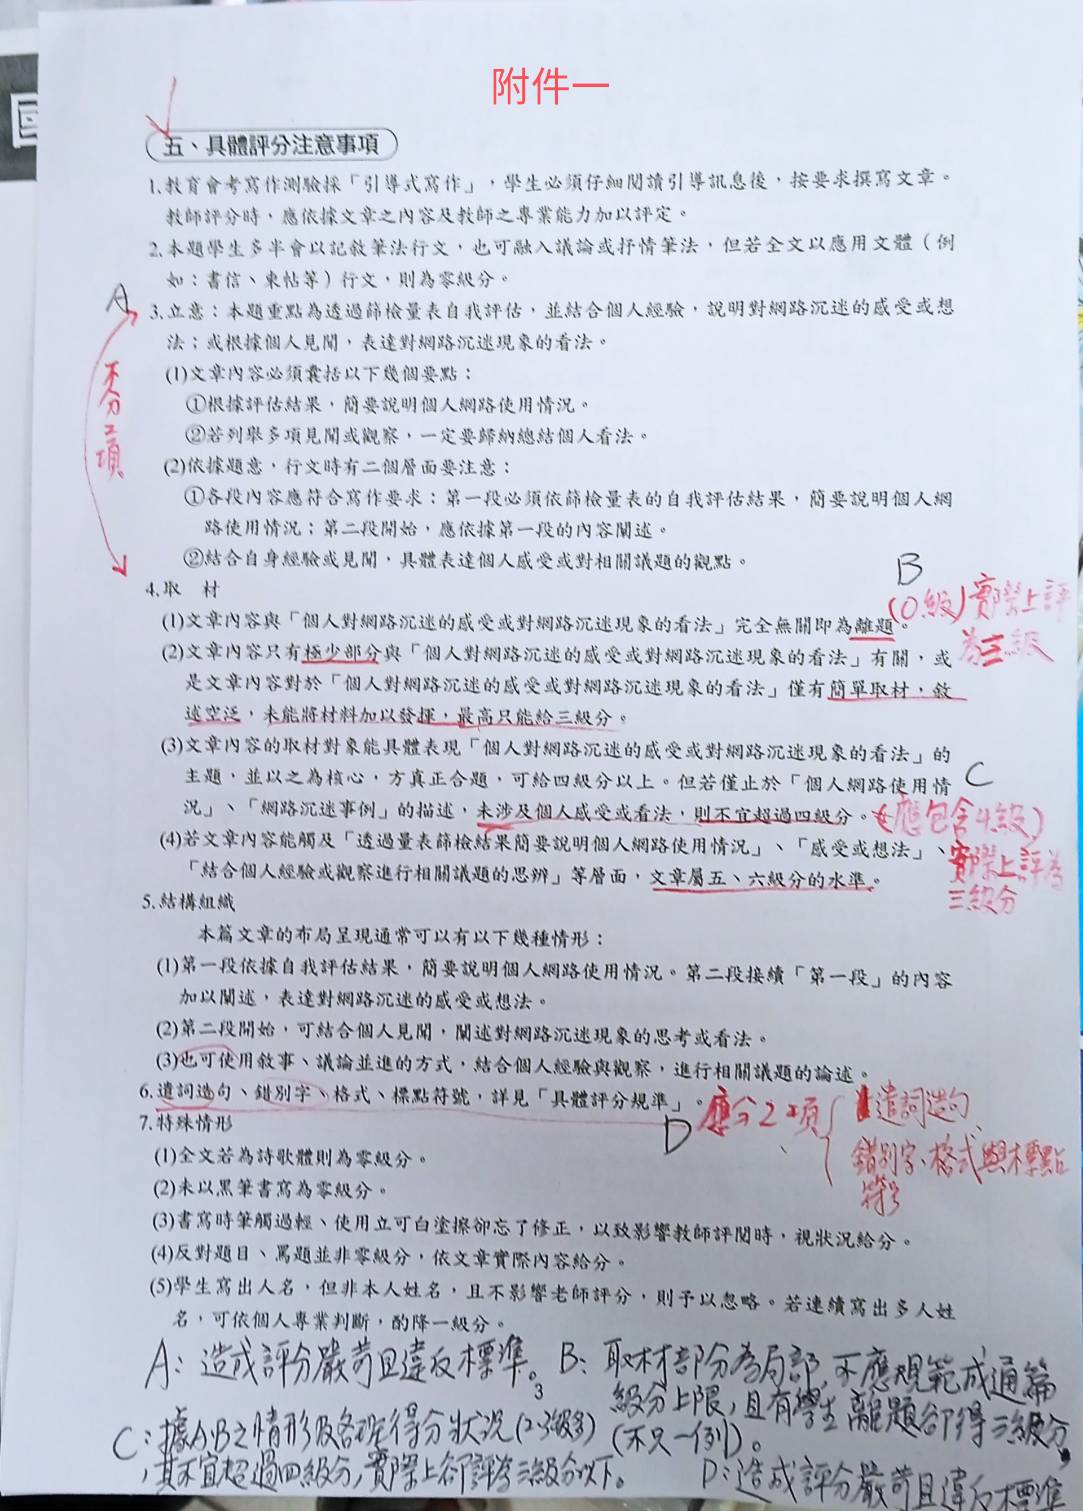 附件一
五、具體評分注意事項
1.教育會考寫作測驗採「引導式寫作」，學生必須仔細閱讀引導訊息後，按要求撰寫文章。
教師評分時，應依據文章之內容及教師之專業能力加以評定。
2.本題學生多半會以記敘筆法行文，也可融入議論或抒情筆法，但若全文以應用文體（例
如：書信、柬帖等）行文，則為零級分。
A
3.立意：本題重點為透過篩檢量表自我評估，並結合個人經驗，說明對網路沉迷的感受或想
法；或根據個人見聞，表達對網路沉迷現象的看法。
不分2項
(1)文章內容必須囊括以下幾個要點：
①根據評估結果，簡要說明個人網路使用情況。
②若列舉多項見聞或觀察，一定要歸納總結個人看法。
(2)依據題意，行文時有二個層面要注意：
①各段內容應符合寫作要求：第一段必須依篩檢量表的自我評估結果，簡要說明個人網
路使用情況；第二段開始，應依據第一段的內容闡述。
②結合自身經驗或見聞，具體表達個人感受或對相關議題的觀點。
4.取　材
B
(1)文章內容與「個人對網路沉迷的感受或對網路沉迷現象的看法」完全無關即為離題。
(0級)實際上評
為三級
(2)文章內容只有極少部分與「個人對網路沉迷的感受或對網路沉迷現象的看法」有關，或
是文章內容對於「個人對網路沉迷的感受或對網路沉迷現象的看法」僅有簡單取材，敘
述空泛，未能將材料加以發揮，最高只能給三級分。
(3)文章內容的取材對象能具體表現「個人對網路沉迷的感受或對網路沉迷現象的看法」的
主題，並以之為核心，方真正合題，可給四級分以上。但若僅止於「個人網路使用情
C
況」、「網路沉迷事例」的描述，未涉及個人感受或看法，則不宜超過四級分。
(應包含4級)
實際上評為
三級分
(4)若文章內容能觸及「透過量表篩檢結果簡要說明個人網路使用情況」、「感受或想法」、
「結合個人經驗或觀察進行相關議題的思辨」等層面，文章屬五、六級分的水準。
5.結構組織
本篇文章的布局呈現通常可以有以下幾種情形：
(1)第一段依據自我評估結果，簡要說明個人網路使用情況。第二段接續「第一段」的內容
加以闡述，表達對網路沉迷的感受或想法。
(2)第二段開始，可結合個人見聞，闡述對網路沉迷現象的思考或看法。
(3)也可使用敘事、議論並進的方式，結合個人經驗與觀察，進行相關議題的論述。
6.遣詞造句、錯別字、格式、標點符號，詳見「具體評分規準」。
D
應分2項
遣詞造句、
錯別字、格式與標點
符號
7.特殊情形
(1)全文若為詩歌體則為零級分。
(2)未以黑筆書寫為零級分。
(3)書寫時筆觸過輕、使用立可白塗擦卻忘了修正，以致影響教師評閱時，視狀況給分。
(4)反對題目、罵題並非零級分，依文章實際內容給分。
(5)學生寫出人名，但非本人姓名，且不影響老師評分，則予以忽略。若連續寫出多人姓
名，可依個人專業判斷，酌降一級分。
A：造成評分嚴苛且違反標準。
B：取材部分為局部，不應規範成通篇
級分上限，且有學生離題卻得三級分
(不只一例)。
3
C：據A,B之情形及各班得分狀況(2-3級多)
，其不宜超過四級分，實際上卻評為三級分以下。
D：造成評分嚴苛且違反標準